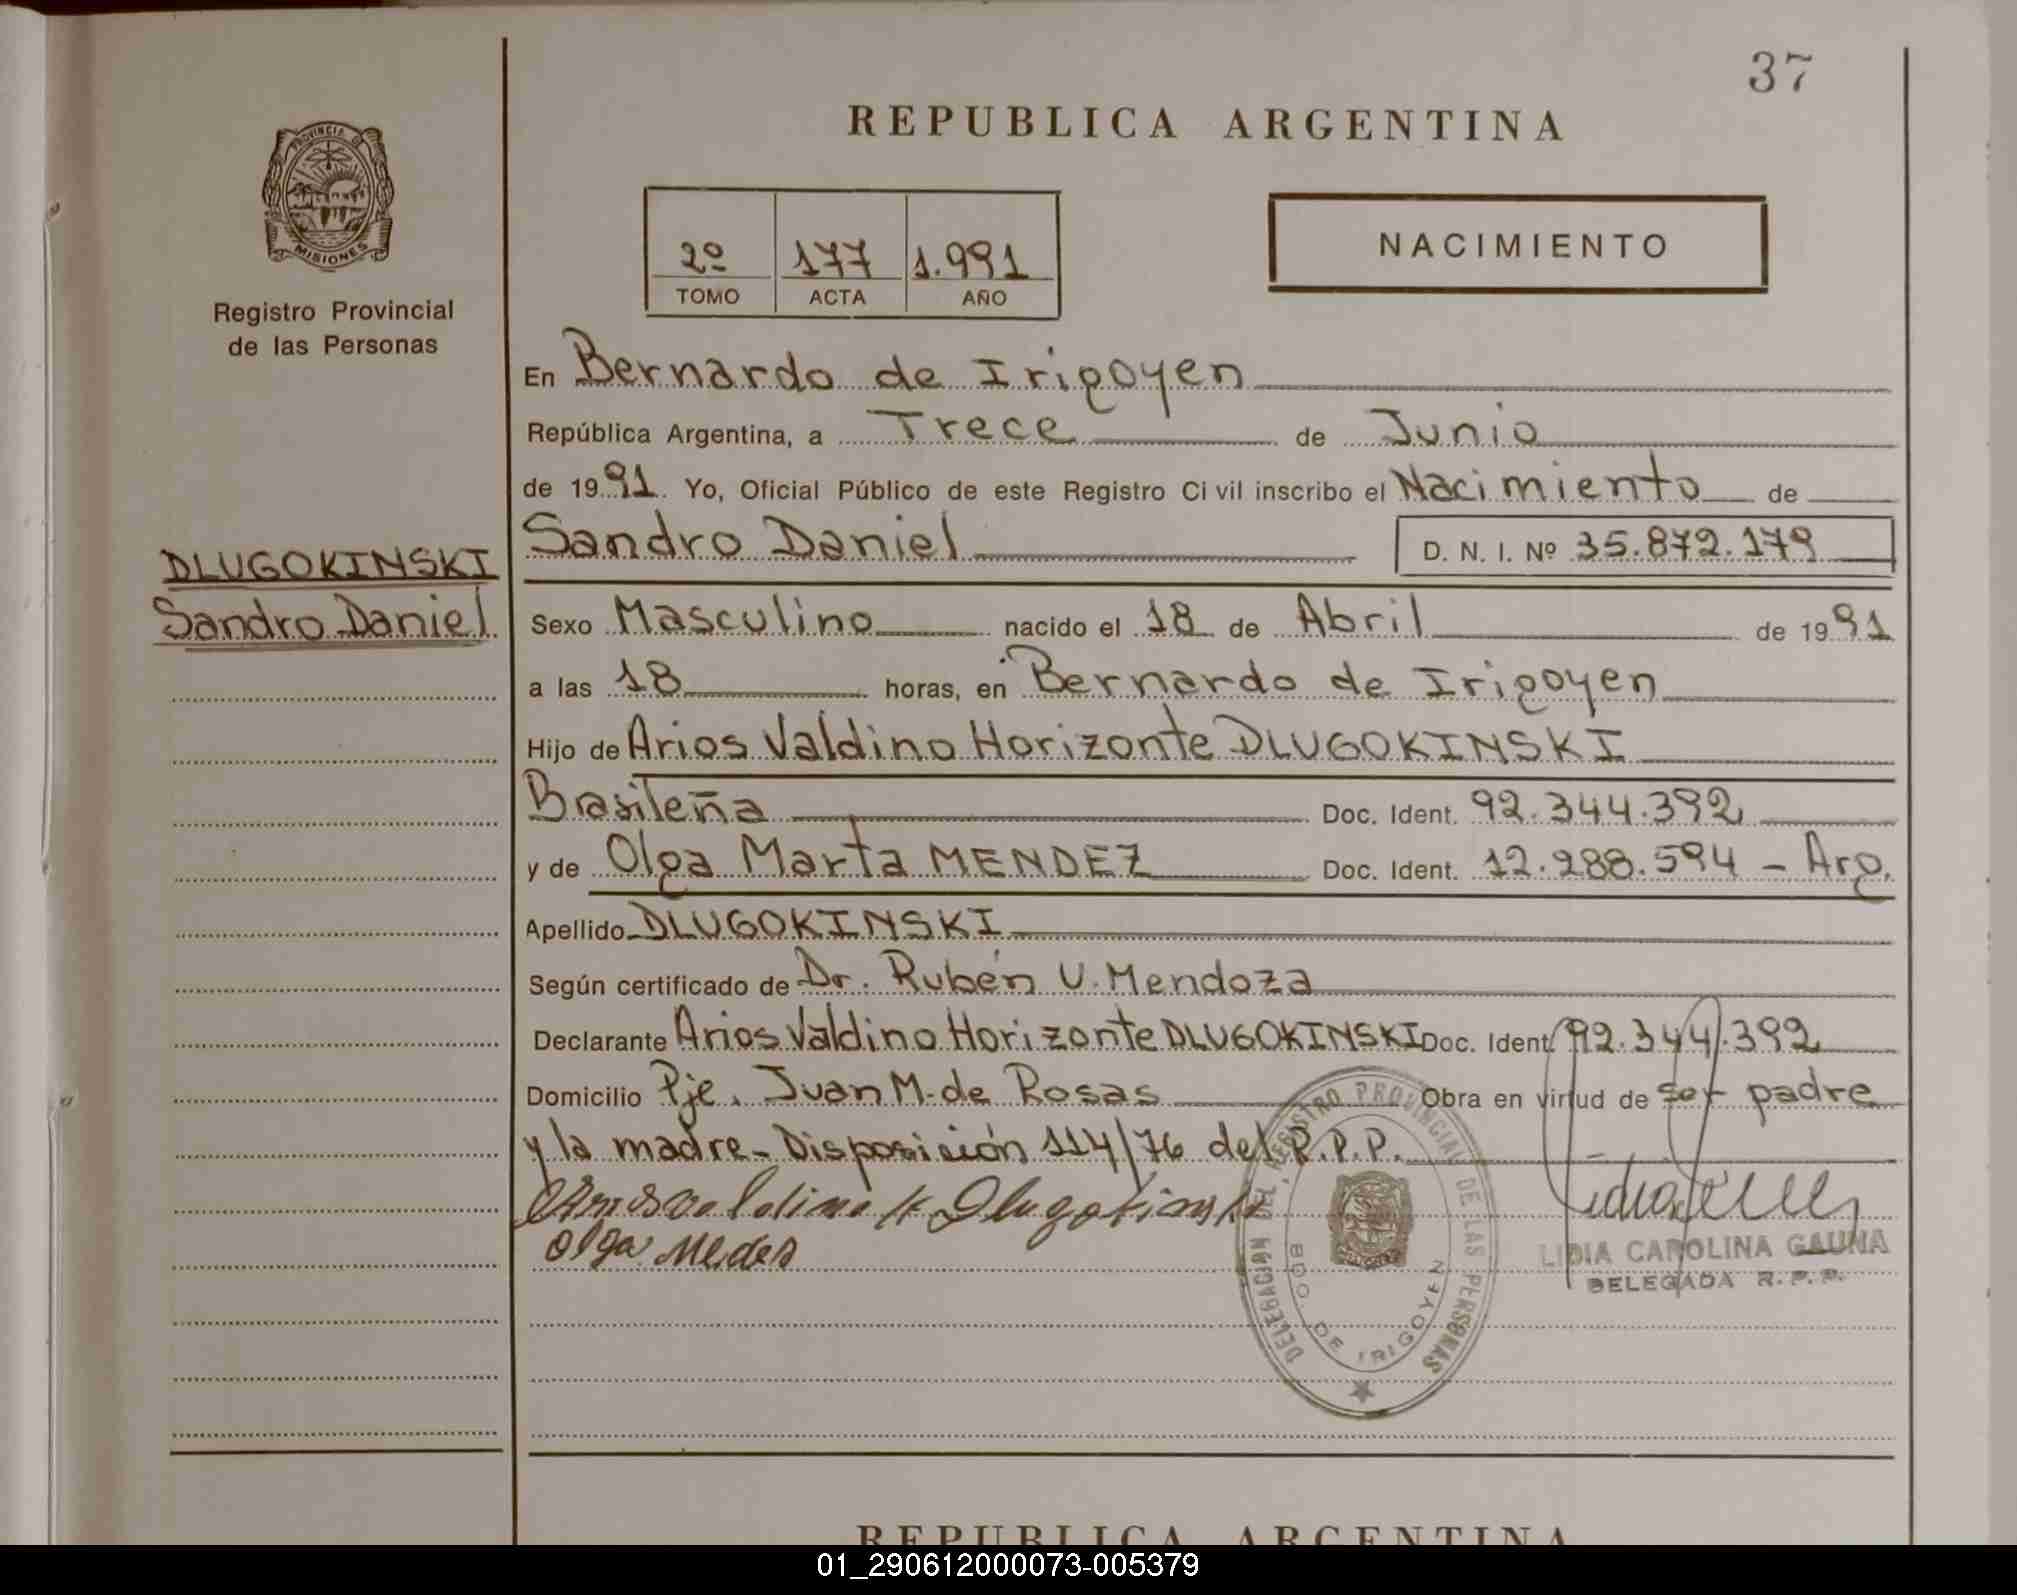 37
REPUBLICA ARGENTINA
PROVINCIA DE
MISIONES
Registro Provincial
de las Personas
2º 177 1.991
TOMO ACTA AÑO
NACIMIENTO
En Bernardo de Irigoyen
República Argentina, a Trece de Junio
de 1991. Yo, Oficial Público de este Registro Civil inscribo el Nacimiento de
Sandro Daniel D. N. I. Nº 35.872.179
DLUGOKINSKI
Sandro Daniel
Sexo Masculino nacido el 18 de Abril de 1991
a las 18 horas, en Bernardo de Irigoyen
Hijo de Arios Valdino Horizonte DLUGOKINSKI
Brasileña Doc. Ident. 92.344.392
y de Olga Marta MENDEZ Doc. Ident. 12.288.594 - Arg.
Apellido DLUGOKINSKI
Según certificado de Dr. Rubén U. Mendoza
Declarante Arios Valdino Horizonte DLUGOKINSKI Doc. Ident. 92.344.392
Domicilio Pje. Juan M. de Rosas Obra en virtud de ser padre
y la madre - Disposición 114/76 del R.P.P.
Arios Valdino H Dlugokinski
Olga Mendes
DELEGACION DEL REGISTRO PROVINCIAL DE LAS PERSONAS
BDO. DE IRIGOYEN
LIDIA CAROLINA GAUNA
DELEGADA R.P.P.
REPUBLICA ARGENTINA
01_290612000073-005379